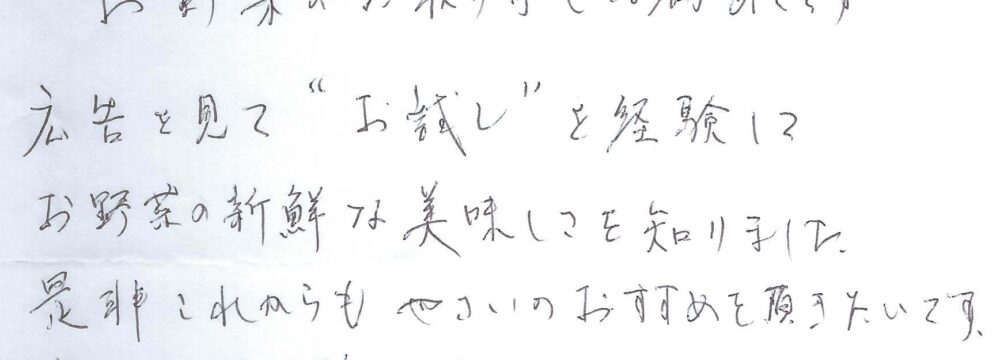 広告を見て“お試し”を経験して
お野菜の新鮮な美味しさを知りました。
是非これからもやさいのおすすめを頂きたいです。